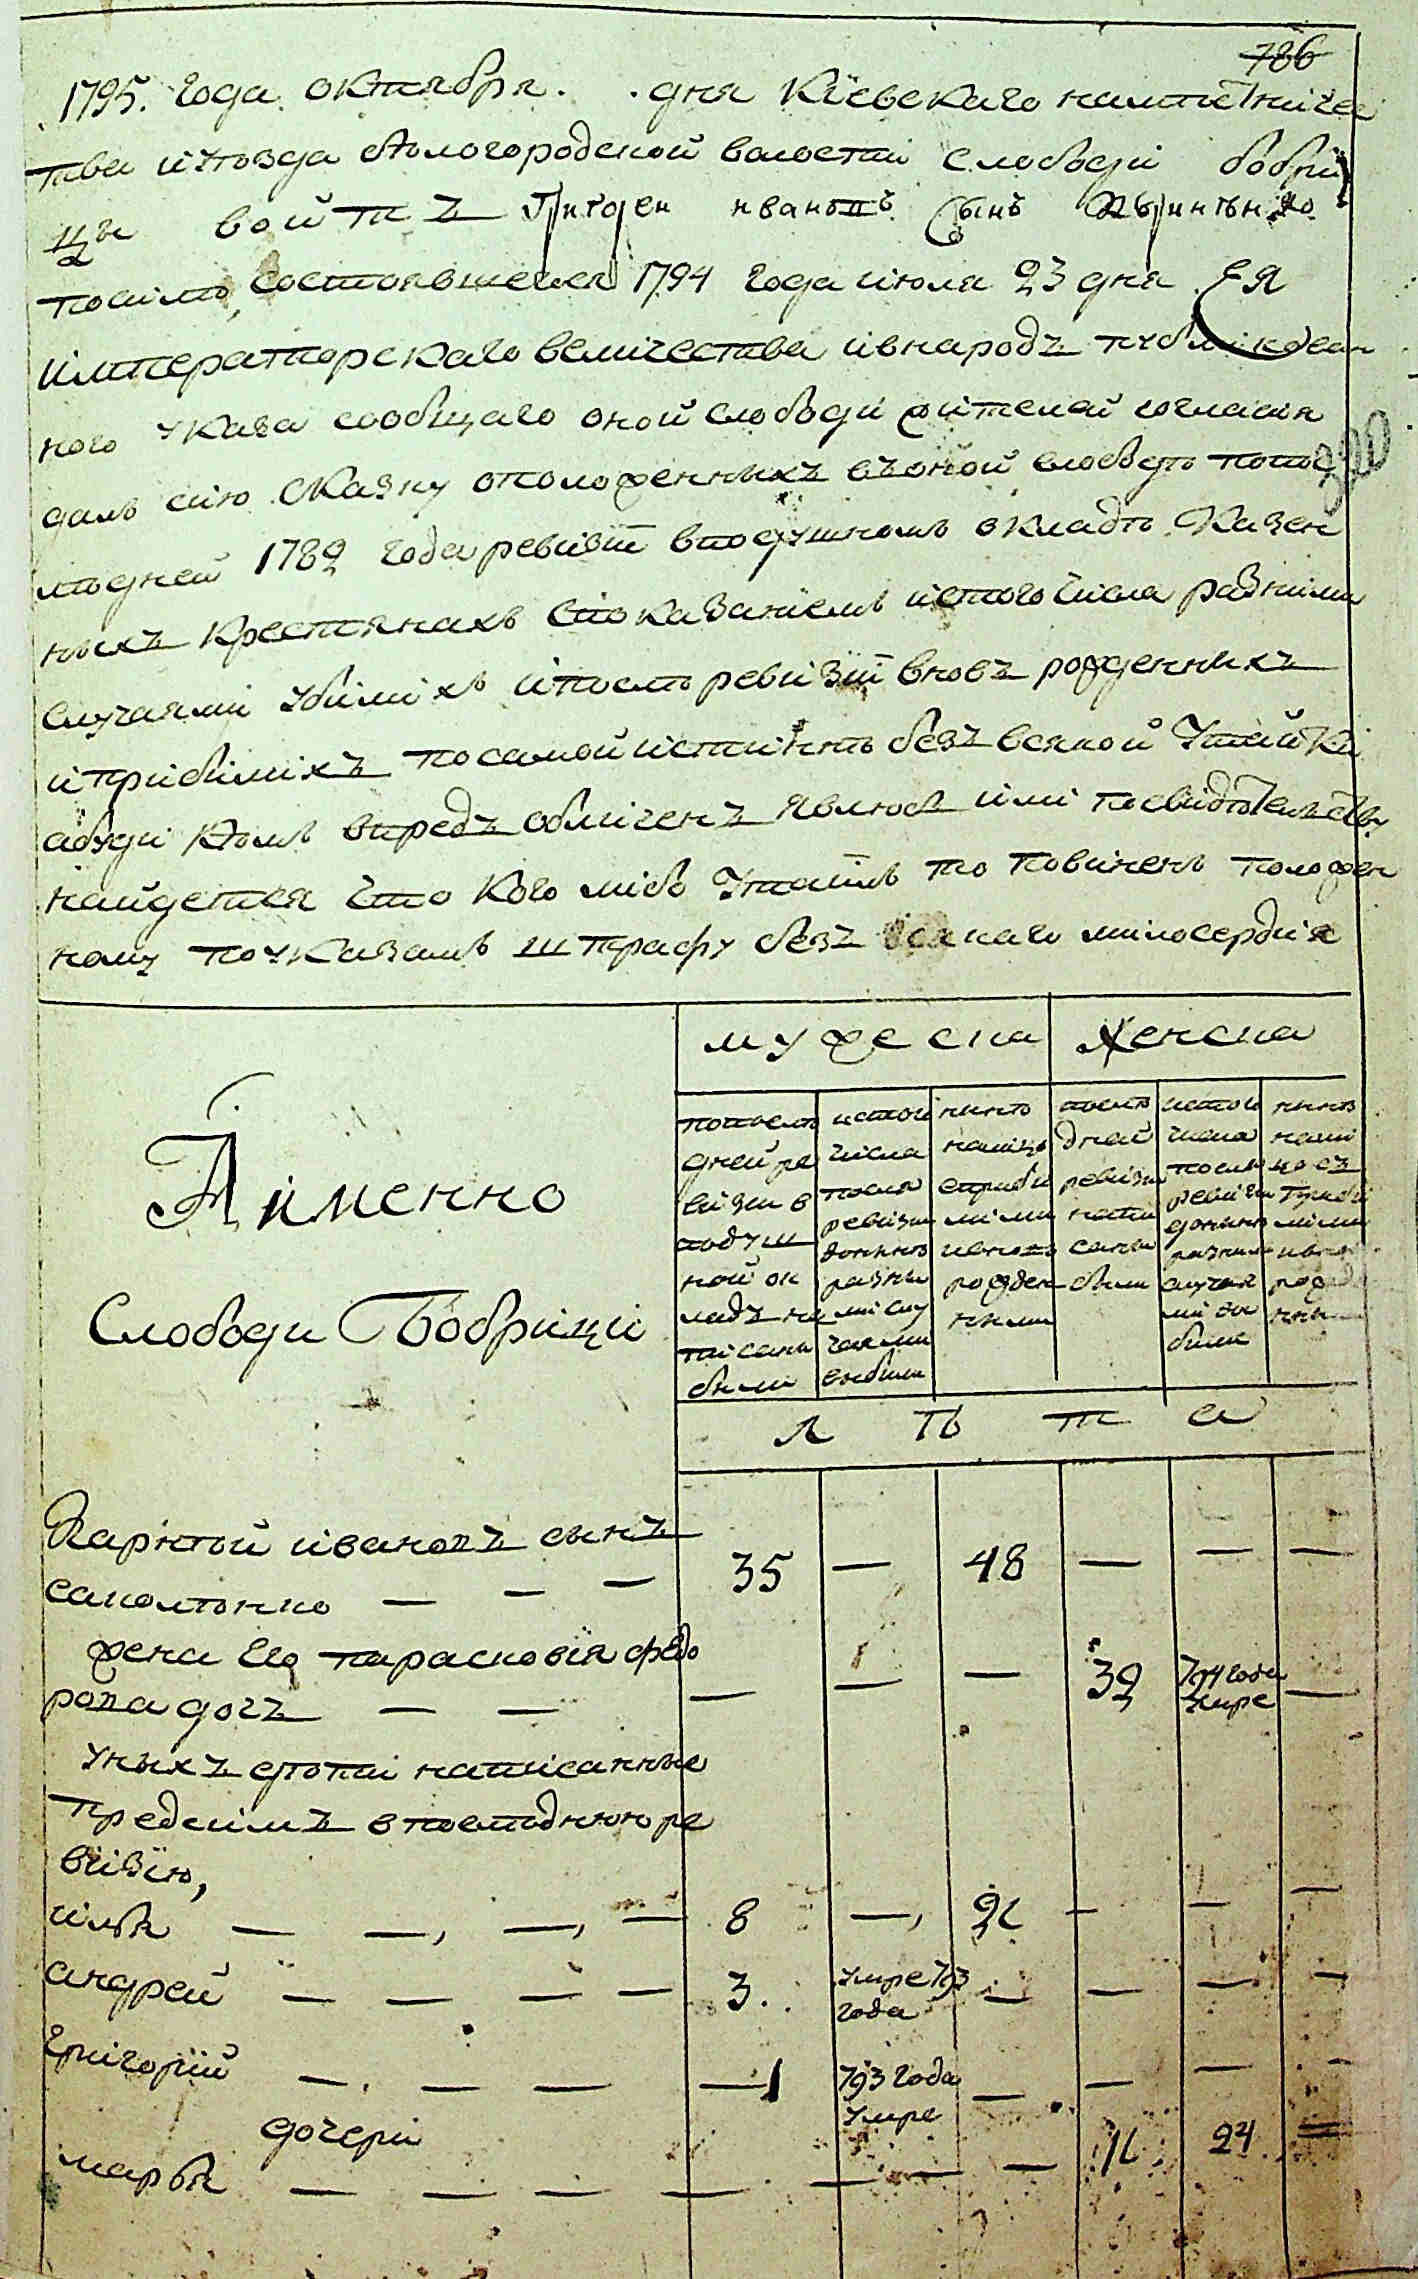 786
1795. года октября. . дня Кіевскаго намѣстничес
тва и уѣзда Бѣлогородской волости слободи бобри
цы войтъ Григорей ивановъ Сынъ
посилѣ, состоявшегося 1794 года июля 23 дня ЕЯ
императорскаго величества ивнародъ публикован
ного указа сообщаго оной слободи жителей согласия
далъ сию сказку оположенныхъ въоной слободѣ попос
лѣдней 1782 года ревизіи вподушномъ окладѣ Казен
ныхъ крестянахъ спокаваніемъ истого числа разними
случаями убилихъ ипослѣ ревизіи вновъ рожденнихъ
иприбилихъ посамой истиннѣ безъ всякой Утайки
абуди кѣмъ впредъ обличенъ явлюсъ или посвидѣтелству
найдется что кого либо Утаилъ то повиненъ положен
ному поуказамъ штрафу безъ всякаго милосердия
мужеска женска
Аименно
Слободи Бобрици
попослѣ
дней ре
визии в
подуш
ной ок
ладъ на
писаны
были
истого
числа
послѣ
ревизии
донинѣ
разны
ми слу
чаями
выбыли
нинѣ
налицо
сприбы
лими
ивновъ
рожден
ними
послѣ
дней
ревизии
написаны
были
истого
числа
послѣ
ревизии
донинѣ
разними
случая
ми вы
были
нинѣ
нали
цо съ
прибы
лими
л ѣ т а
иванов сынъ 35 — 48 — — —
жена Его парасковія федо
рова дочъ — — — — — 32 794 года умре —
Уныхъ дѣти написанные
предсимъ впослѣднюю ре
визію,
илья — —, —, — 8 —, 21 — — —
андрей — — — — 3. умре 793 года — — — —
григорій —. — — — 1 793 года умре — — — —
дочери
марья — — — — — — — 11 24 —